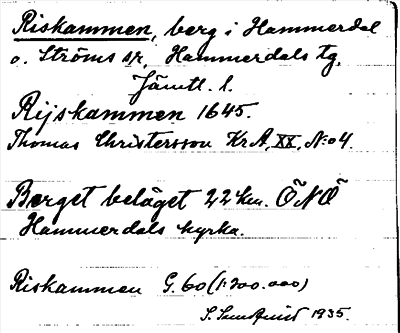 Riskammen, berg i Hammerdal
o. Ströms sr, Hammerdals tg,
Jämtl. l.
Rijskammen 1645.
Thomas Christersson KrA, XX, No 4.
Berget beläget 22 km. ÕNÕ
Hammerdals kyrka.
Riskammen G. 60 (1:200.000)
S. Lundquist 1935.